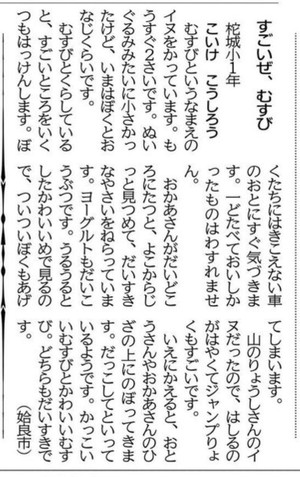 すごいぜ、むすび
柁城小1年
こいけ　こうしろう
むすびというなまえの
イヌをかっています。も
うすぐ2さいです。ぬい
ぐるみみたいに小さかっ
たけど、いまはぼくとお
なじくらいです。
むすびとくらしている
と、すごいところをいく
つもはっけんします。ぼ
くたちにはきこえない車
のおとにすぐ気づきま
す。一どたべておいしか
ったものはわすれませ
ん。
おかあさんがだいどこ
ろにたつと、よこからじ
っと見つめて、だいすき
なやさいをねらっていま
す。ヨーグルトもだいこ
うぶつです。うるうると
したかわいいめで見るの
で、ついついぼくもあげ
てしまいます。
山のりょうしさんのイ
ヌだったので、はしるの
がはやくてジャンプりょ
くもすごいです。
いえにかえると、おと
うさんやおかあさんのひ
ざの上にのぼってきま
す。だっこしてといって
いるようです。かっこい
いむすびとかわいいむす
び。どちらもだいすきで
す。
（姶良市）